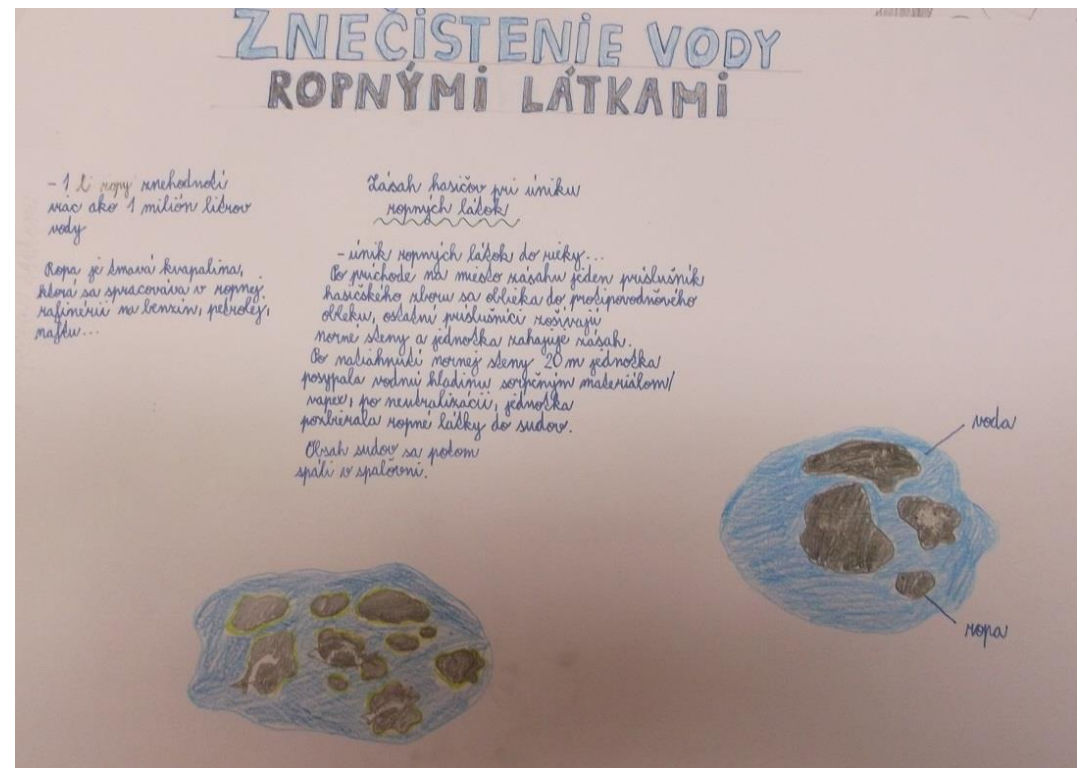 ZNEČISTENIE VODY
ROPNÝMI LÁTKAMI
- 1 l ropy znehodnotí
viac ako 1 milión litrov
vody
Ropa je tmavá kvapalina,
ktorá sa spracováva v ropnej
rafinérii na benzín, petrolej,
naftu...
Zásah hasičov pri úniku
ropných látok
- únik ropných látok do rieky...
Po príchode na miesto zásahu jeden príslušník
hasičského zboru sa oblieka do protipovodňového
obleku, ostatní príslušníci zošívajú
norné steny a jednotka zahajuje zásah.
Po natiahnutí nornej steny 20 m jednotka
posypala vodnú hladinu sorpčným materiálom/
vapex, po neutralizácii, jednotka
pozbierala ropné látky do sudov.
Obsah sudov sa potom
spáli v spaľovni.
voda
ropa